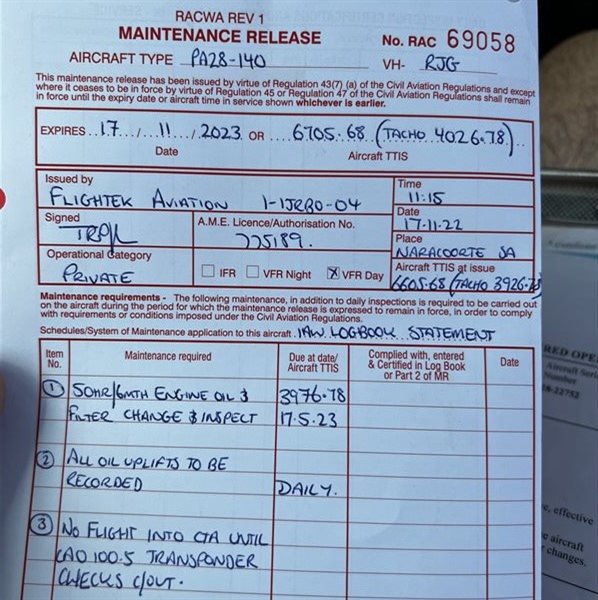 RACWA REV 1
MAINTENANCE RELEASE
No. RAC 69058
AIRCRAFT TYPE PA28-140
VH- RJG
This maintenance release has been issued by virtue of Regulation 43(7) (a) of the Civil Aviation Regulations and except
where it ceases to be in force by virtue of Regulation 45 or Regulation 47 of the Civil Aviation Regulations shall remain
in force until the expiry date or aircraft time in service shown whichever is earlier.
EXPIRES 17 / 11 / 2023 OR 6705.68 (TACHO 4026.78)
Date
Aircraft TTIS
Issued by
FLIGHTEK AVIATION 1-1JRB0-04
Time
11:15
Signed
A.M.E. Licence/Authorisation No.
775189.
Date
17-11-22
Place
NARACOORTE SA
Operational Category
PRIVATE
IFR VFR Night X VFR Day
Aircraft TTIS at issue
6605.68 (TACHO 3926.78
Maintenance requirements - The following maintenance, in addition to daily inspections is required to be carried out
on the aircraft during the period for which the maintenance release is expressed to remain in force, in order to comply
with requirements or conditions imposed under the Civil Aviation Regulations.
Schedules/System of Maintenance application to this aircraft. IAW LOGBOOK STATEMENT
Item No.
Maintenance required
Due at date/ Aircraft TTIS
Complied with, entered & Certified in Log Book or Part 2 of MR
Date
1 50HR/6MTH ENGINE OIL & 3976.78
FILTER CHANGE & INSPECT 17.5.23
2 ALL OIL UPLIFTS TO BE
RECORDED DAILY.
3 NO FLIGHT INTO CTA UNTIL
CAO 100.5 TRANSPONDER
CHECKS C/OUT.
RED OPE
Aircraft Seri
Number
28-22752
e, effective
e aircraft
changes.